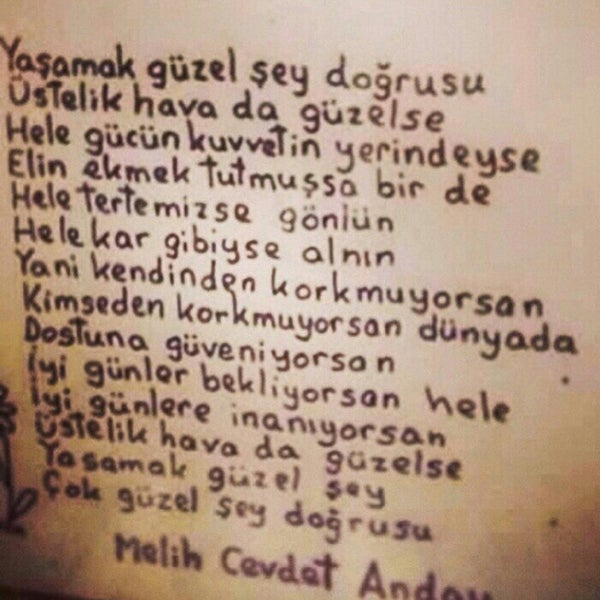 Yaşamak güzel şey doğrusu
Üstelik hava da güzelse
Hele gücün kuvvetin yerindeyse
Elin ekmek tutmuşsa bir de
Hele tertemizse gönlün
Hele kar gibiyse alnın
Yani kendinden korkmuyorsan
Kimseden korkmuyorsan dünyada
Dostuna güveniyorsan
İyi günler bekliyorsan hele
İyi günlere inanıyorsan
Üstelik hava da güzelse
Yaşamak güzel şey
Çok güzel şey doğrusu
Melih Cevdet Anday